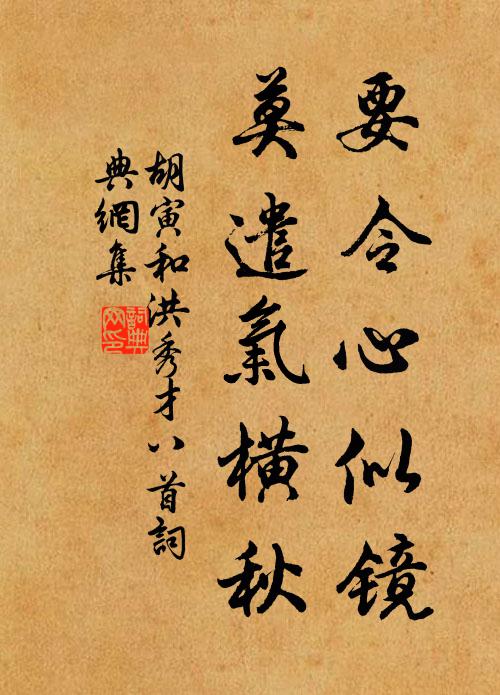 要令心似镜
莫遣氣横秋
胡寅和洪秀才八首詞
典網集
詞典网印